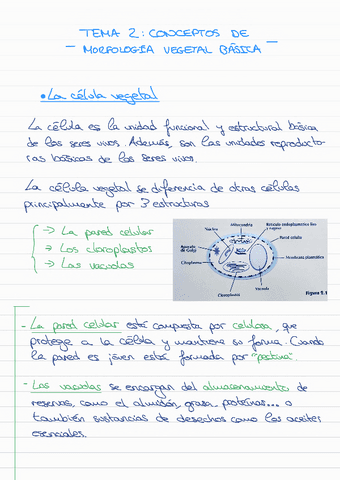 TEMA 2: CONCEPTOS DE
MORFOLOGÍA VEGETAL BÁSICA
La célula vegetal
La célula es la unidad funcional y estructural básica
de los seres vivos. Además, son las unidades reproducto-
ras básicas de los seres vivos.
La célula vegetal se diferencia de otras células
principalmente por 3 estructuras
→ La pared celular
→ Los cloroplastos
→ Las vacuolas
Mitocondria
Retículo endoplasmático liso
y rugoso
Núcleo
Pared celular
Aparato
de Golgi
Membrana plasmática
Citoplasma
Vacuola
Cloroplasto
Figura 2.1
- La pared celular está compuesta por celulosa, que
protege a la célula y mantiene su forma. Cuando
la pared es joven está formada por "pectina".
- Las vacuolas se encargan del almacenamiento de
reservas, como el almidón, grasa, proteínas... o
también sustancias de desechos como los aceites
esenciales.